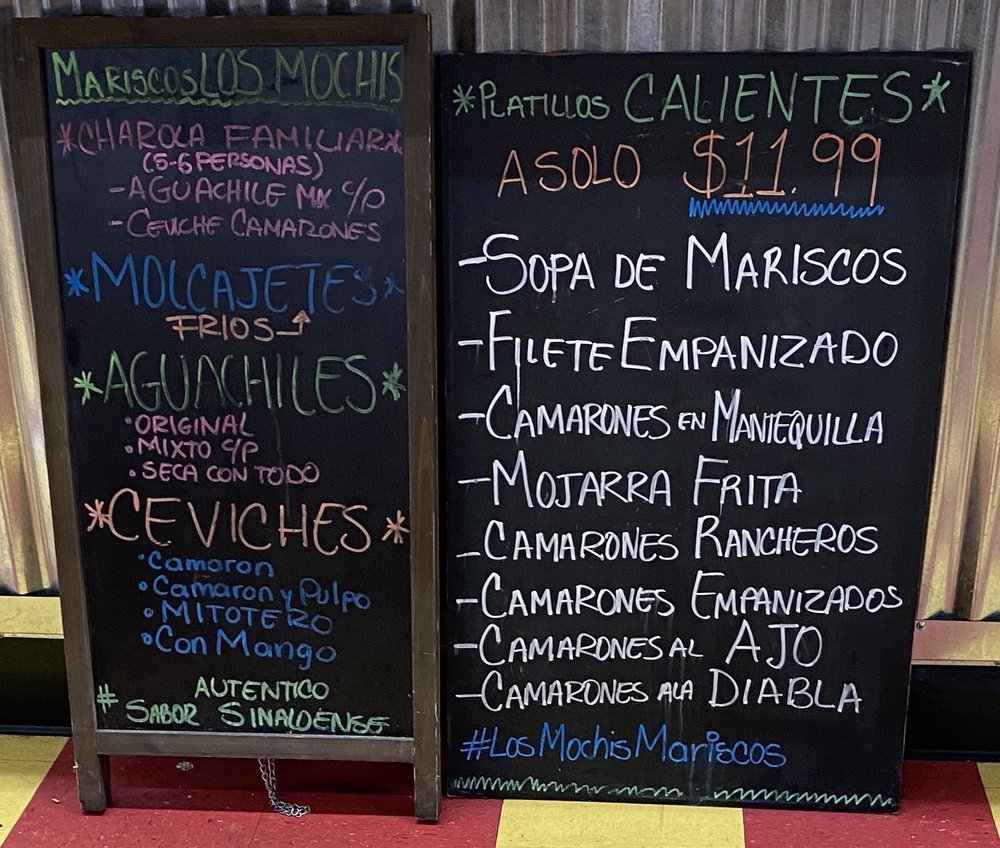 MARISCOS LOS MOCHIS
*CHAROLA FAMILIAR*
(5-6 PERSONAS)
-AGUACHILE MIX C/P
-CEVICHE CAMARONES
*MOLCAJETES*
FRIOS
*AGUACHILES*
•ORIGINAL
•MIXTO C/P
•SECA CON TODO
*CEVICHES*
•Camaron
•Camaron y Pulpo
•MITOTERO
•Con Mango
# AUTENTICO
SABOR SINALOENSE
*PLATILLOS CALIENTES*
A SOLO $11.99
-SOPA DE MARISCOS
-FILETE EMPANIZADO
-CAMARONES EN MANTEQUILLA
-MOJARRA FRITA
-CAMARONES RANCHEROS
-CAMARONES EMPANIZADOS
-CAMARONES AL AJO
-CAMARONES ALA DIABLA
#LosMochisMariscos